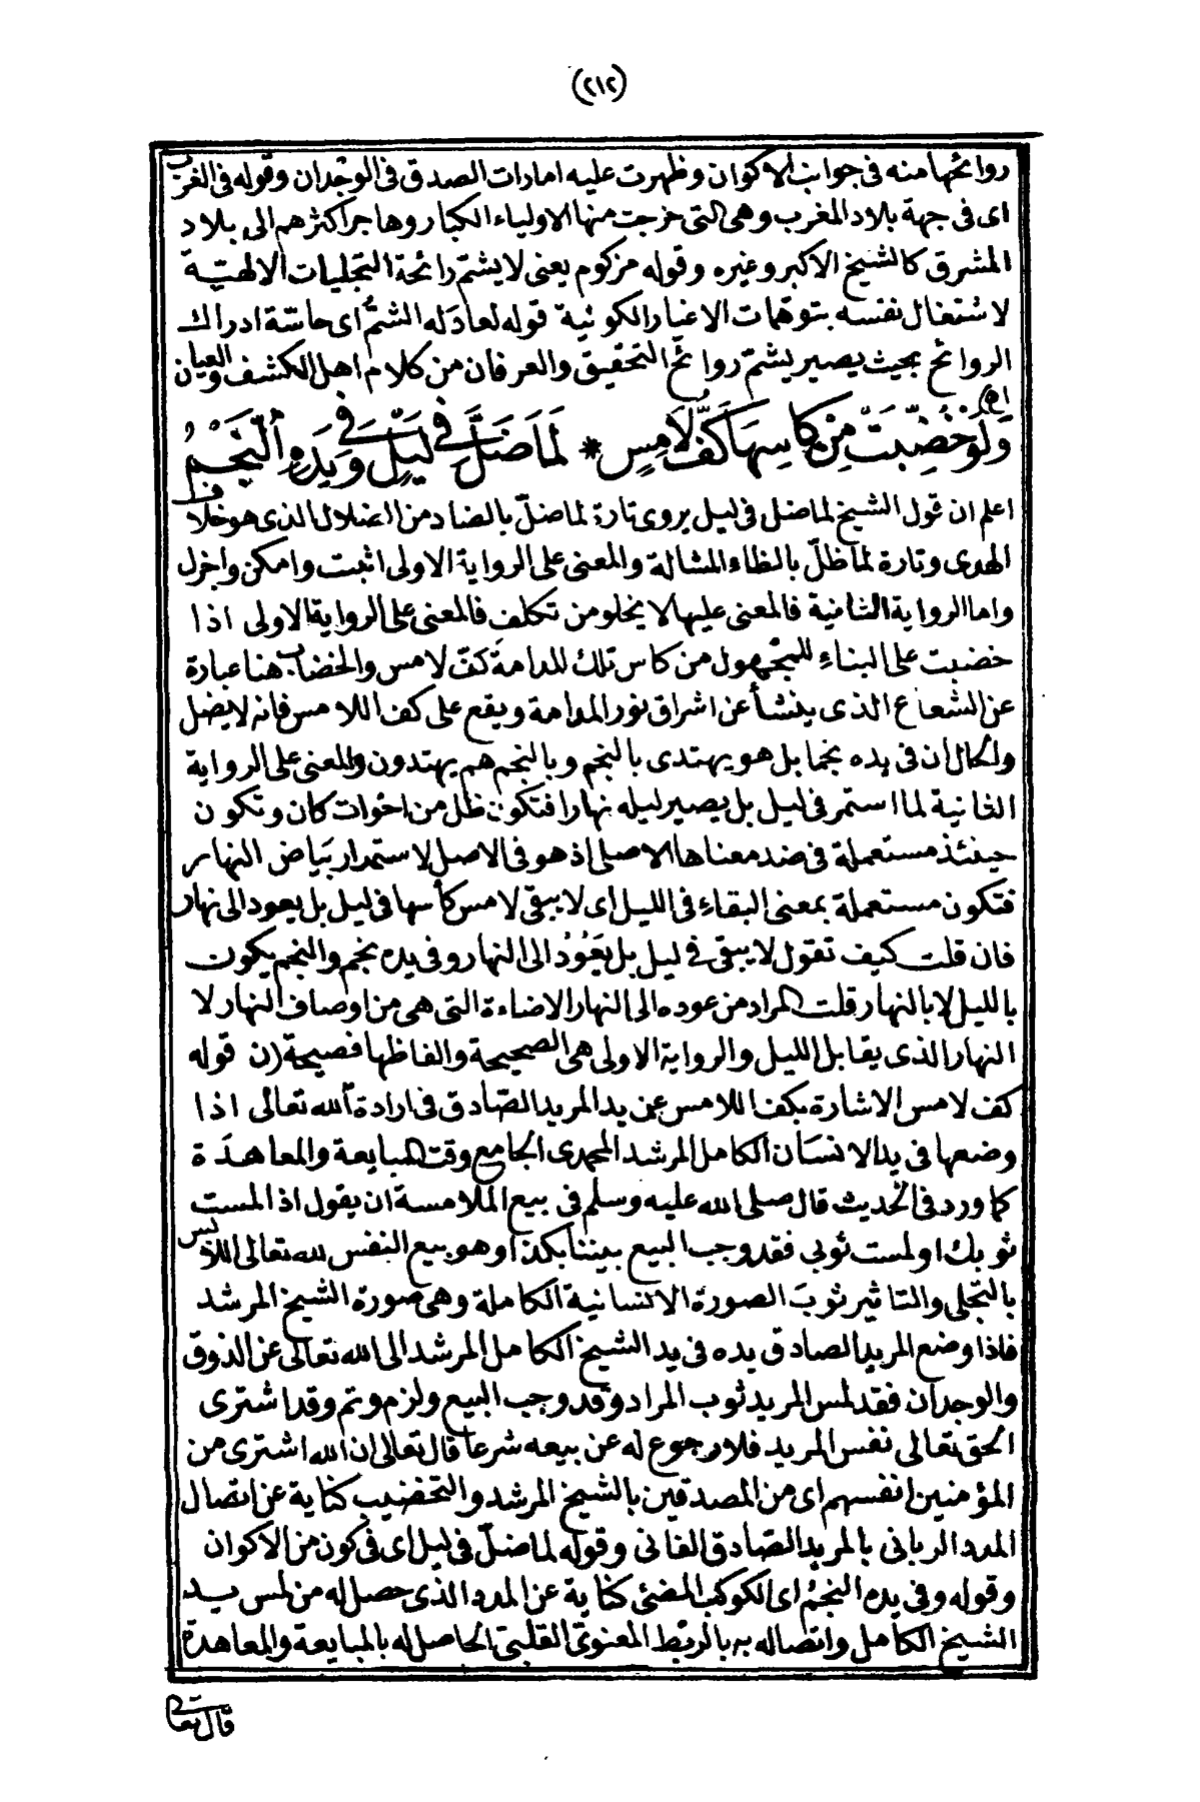 (٢١٢)
روائحها منه فى جوانب الاكوان وظهرت عليه امارات الصدق فى الوجدان وقوله فى الغرب
اى فى جهة بلاد المغرب وهى التى خرجت منها الاولياء الكبار وهاجر اكثرهم الى بلاد
المشرق كالشيخ الاكبر وغيره وقوله مزكوم يعنى لا يشتمّ رائحة التجليات الالهيّة
لاشتغال نفسه بتوهمات الاغيار الكونيّة قوله لعادَ له الشمُّ اى حاسّة ادراك
الروائح بحيث يصير يشتمّ روائح التحقيق والعرفان من كلام اهل الكشف والعيان
اه‍)
وَلَوْ خُضِّبَتْ مِنْ كَاسِهَا كَفُّ لَامِسٍ * لَمَا ضَلَّ فِى لَيْلٍ وَفِى يَدِهِ النَّجْمُ
اعلم ان قول الشيخ لما ضل فى ليل يروى تارة لما ضلّ بالضاد من الضلال الذى هو خلاف
الهدى وتارة لما ظلّ بالظاء المشالة والمعنى على الرواية الاولى اثبت وامكن واجزل
واما الرواية الثانية فالمعنى عليها لا يخلو من تكلف فالمعنى على الرواية الاولى اذا
خضبت على البناء للمجهول من كاس تلك المدامة كفّ لامس والخضاب هنا عبارة
عن الشعاع الذى ينشأ عن اشراق نور المدامة ويقع على كف اللامس فانه لا يضل
والحال ان فى يده نجما بل هو يهتدى بالنجم وبالنجم هم يهتدون والمعنى على الرواية
الثانية لما استمر فى ليل بل يصير ليله نهارا فتكون ظل من اخوات كان وتكون
حينئذ مستعملة فى ضد معناها الاصلى اذ هو فى الاصل لاستمرار بياض النهار
فتكون مستعملة بمعنى البقاء فى الليل اى لا يبقى لامس كأسها فى ليل بل يعود الى نهار
فان قلت كيف تقول لا يبقى فى ليل بل يَعُودُ الى النهار وفى يده نجم والنجم يكون
بالليل لا بالنهار قلت المراد من عوده الى النهار الاضاءة التى هى من اوصاف النهار لا
النهار الذى يقابل الليل والرواية الاولى هى الصحيحة والفاظها فصيحة (ن قوله
كف لامس الاشارة بكف اللامس عن يد المريد الصّادق فى ارادة الله تعالى اذا
وضعها فى يد الانسان الكامل المرشد المحمدى الجامع وقت المبايعة والمعاهدَة
كما ورد فى الحديث قال صلى الله عليه وسلم فى بيع الملامسة ان يقول اذا لمست
ثوبك او لمست ثوبى فقد وجب البيع بيننا بكذا وهو بيع النفس لله تعالى اللابس
بالتجلى والتاثير ثوبَ الصورة الانسانية الكاملة وهى صورة الشيخ المرشد
فاذا وضع المريد الصادق يده فى يد الشيخ الكامل المرشد الى الله تعالى عن الذوق
والوجدان فقد لمس المريد ثوب المراد وقد وجب البيع ولزم وتم وقد اشترى
الحق تعالى نفس المريد فلا رجوع له عن بيعه شرعا قال تعالى ان الله اشترى من
المؤمنين انفسهم اى من المصدقين بالشيخ المرشد والتخضيب كناية عن اتصال
المدد الربانى بالمريد الصّادق الفانى وقوله لما ضلّ فى ليل اى فى كون من الاكوان
وقوله وفى يده النجمُ اى الكوكب المضئ كناية عن المدد الذى حصل له من لمس يد
الشيخ الكامل واتصاله به بالربط المعنوىّ القلبىّ الحاصل له بالمبايعة والمعاهدة
قال تعالى